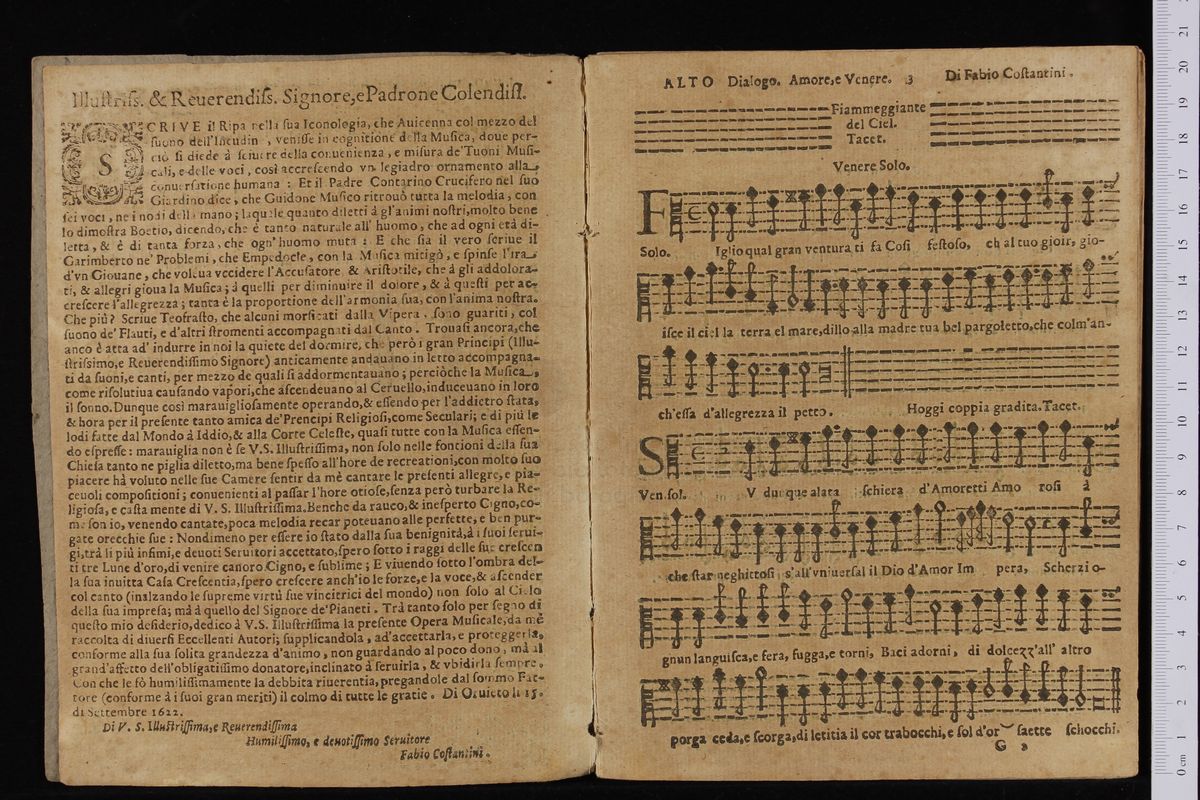 Illustriss. & Reuerendiss. Signore, e Padrone Colendiss.
SCRIVE il Ripa nella sua Iconologia, che Auicenna col mezzo del
suono dell'Incudin, venisse in cognitione della Musica, doue per-
ciò si diede à scriuere della conuenienza, e misura de' Tuoni Musi-
cali, e delle voci, così accrescendo vn legiadro ornamento alla
conuersatione humana: Et il Padre Contarino Crucifero nel suo
Giardino dice, che Guidone Musico ritrouò tutta la melodia, con
sei voci, ne i nodi della mano; laquale quanto diletti à gl'animi nostri, molto bene
lo dimostra Boetio, dicendo, che è tanto naturale all'huomo, che ad ogni età di-
letta, & è di tanta forza, che ogn'huomo muta: E che sia il vero scriue il
Garimberto ne' Problemi, che Empedocle, con la Musica mitigò, e spinse l'ira
d'vn Giouane, che voleua vccidere l'Accusatore & Aristotile, che à gli addolora-
ti, & allegri gioua la Musica; à quelli per diminuire il dolore, & à questi per ac-
crescere l'allegrezza; tanta è la proportione dell'armonia sua, con l'anima nostra.
Che più? Scriue Teofrasto, che alcuni morsicati dalla Vipera, sono guariti, col
suono de' Flauti, e d'altri stromenti accompagnati dal Canto. Trouasi ancora, che
anco è atta ad' indurre in noi la quiete del dormire, che però i gran Principi (Illu-
strissimo, e Reuerendissimo Signore) anticamente andauano in letto accompagna-
ti da suoni, e canti, per mezzo de quali si addormentauano; perciòche la Musica,
come risolutiua causando vapori, che ascendeuano al Ceruello, induceuano in loro
il sonno. Dunque così marauigliosamente operando, & essendo per l'addietro stata,
& hora per il presente tanto amica de' Prencipi Religiosi, come Seculari; e di più le
lodi fatte dal Mondo à Iddio, & alla Corte Celeste, quasi tutte con la Musica essen-
do espresse: marauiglia non è se V.S. Illustrissima, non solo nelle fontioni della sua
Chiesa tanto ne piglia diletto, ma bene spesso all'hore de recreationi, con molto suo
piacere hà voluto nelle sue Camere sentir da mè cantare le presenti allegre, e pia-
ceuoli compositioni; conuenienti al passar l'hore otiose, senza però turbare la Re-
ligiosa, e casta mente di V. S. Illustrissima. Benche da rauco, & inesperto Cigno, co-
me son io, venendo cantate, poca melodia recar poteuano alle perfette, e ben pur-
gate orecchie sue: Nondimeno per essere io stato dalla sua benignità, à i suoi serui-
gi, trà li più infimi, e deuoti Seruitori accettato, spero sotto i raggi delle sue crescen
ti tre Lune d'oro, di venire canoro Cigno, e sublime; E viuendo sotto l'ombra del-
la sua inuitta Casa Crescentia, spero crescere anch'io le forze, e la voce, & ascender
col canto (inalzando le supreme virtù sue vincitrici del mondo) non solo al Cielo
della sua impresa; mà à quello del Signore de' Pianeti. Trà tanto solo per segno di
questo mio desiderio, dedico à V.S. Illustrissima la presente Opera Musicale, da mè
raccolta di diuersi Eccellenti Autori; supplicandola, ad'accettarla, e proteggerla,
conforme alla sua solita grandezza d'animo, non guardando al poco dono, mà al
grand'affetto dell'obligatissimo donatore, inclinato à seruirla, & vbidirla sempre.
Con che le fò humilissimamente la debbita riuerentia, pregandole dal sommo Fat-
tore (conforme à i suoi gran meriti) il colmo di tutte le gratie. Di Oruieto li 15.
di Settembre 1622.
Di V. S. Illustrissima, e Reuerendissima
Humilissimo, e deuotissimo Seruitore
Fabio Costantini.
ALTO Dialogo. Amore, e Venere. 3 Di Fabio Costantini.
Fiammeggiante
del Ciel.
Tacet.
Venere Solo.
F
Solo. Iglio qual gran ventura ti fa Cosi festoso, ch al tuo gioir, gio-
isce il ciel la terra el mare, dillo alla madre tua bel pargoletto, che colm'an-
ch'essa d'allegrezza il petto. Hoggi coppia gradita. Tacet.
S
Ven. sol. V dunque alata schiera d'Amoretti Amo rosi à
che star neghittosi s'all'vniuersal il Dio d'Amor Im pera, Scherzi o-
gnun languisca, e fera, fugga, e torni, Baci adorni, di dolcezz'all' altro
porga ceda, e scorga, di letitia il cor trabocchi, e sol d'or saette schocchi.
G 2